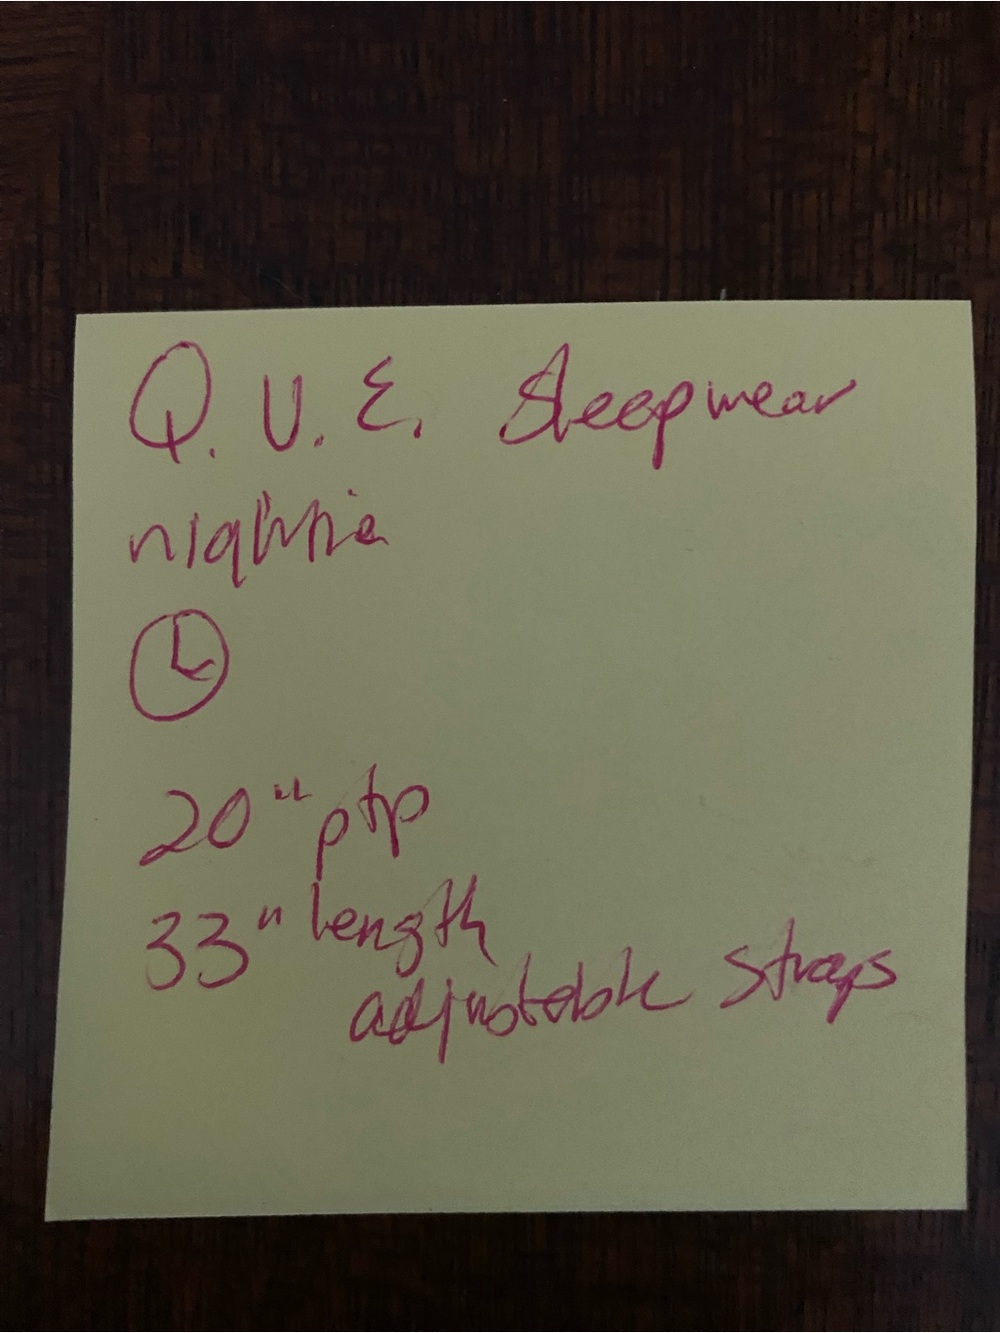 Q. U. E. Sleepwear
nightie
L
20" ptp
33" length
adjustable straps